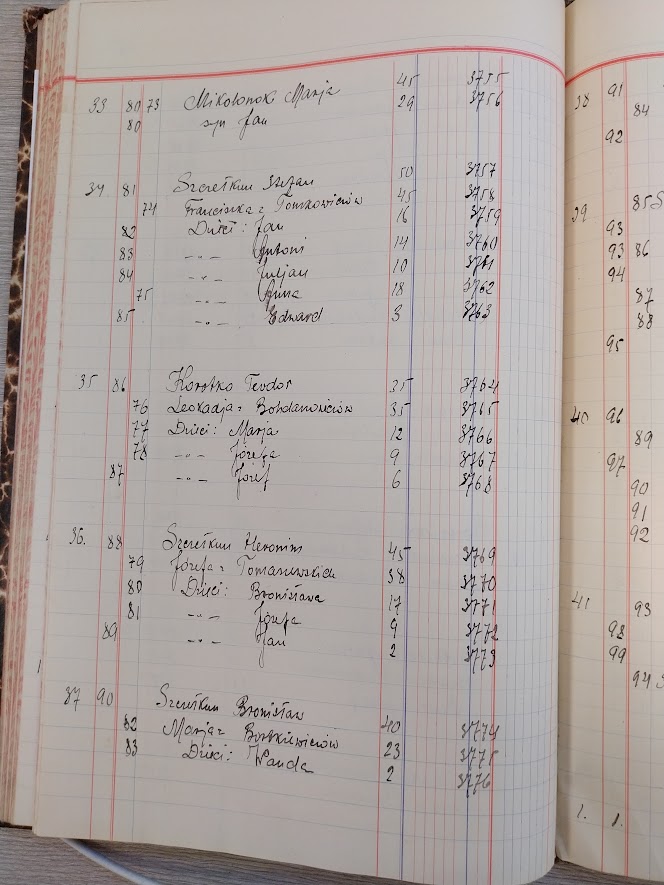 33 80 73 Mikołonok Marja 45 3755
80 syn Jan 29 3756
34 81 Szczetkun Stefan 50 3757
74 Franciszka z Tomkowiczów 45 3758
82 Dzieci: Jan 16 3759
83 -„- Antoni 14 3760
84 -„- Juljan 10 3761
75 -„- Anna 18 3762
85 -„- Edward 3 3763
35 86 Horotko Teodor 35 3764
76 Leokadja z Bohdanowiczów 35 3765
77 Dzieci: Marja 12 3766
78 -„- Józefa 9 3767
87 -„- Józef 6 3768
36. 88 Szczetkun Heronim 45 3769
79 Józefa z Tomaszewskich 38 3770
80 Dzieci: Bronisława 17 3771
81 -„- Józefa 9 3772
89 -„- Jan 2 3773
87 90 Szczetkun Bronisław 40 3774
82 Marja z Bortkiewiczów 23 3775
83 Dzieci: Wanda 2 3776
38 91
84
92
39 85
93
93 86
94
87
88
95
40 96
89
97
90
91
92
41 93
98
99
94
1. 1.